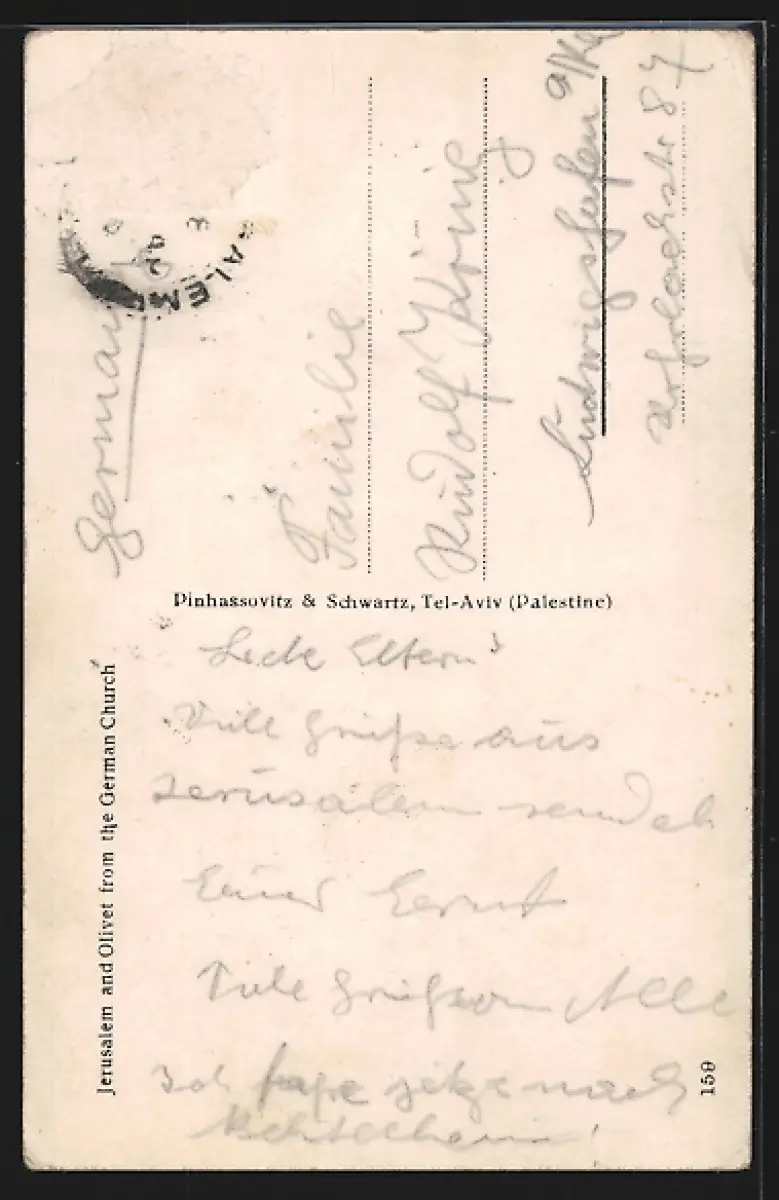 Germany
Familie
Rudolf König
Ludwigshafen a/Rh
Rohrlachstr 87
ALEM
Pinhassovitz & Schwartz, Tel-Aviv (Palestine)
Jerusalem and Olivet from the German Church
Liebe Eltern!
Viele Grüße aus
Jerusalem sendet
Euer Ernst
Viele Grüße an Alle
Ich fahre jetzt nach
Bethlehem!
159